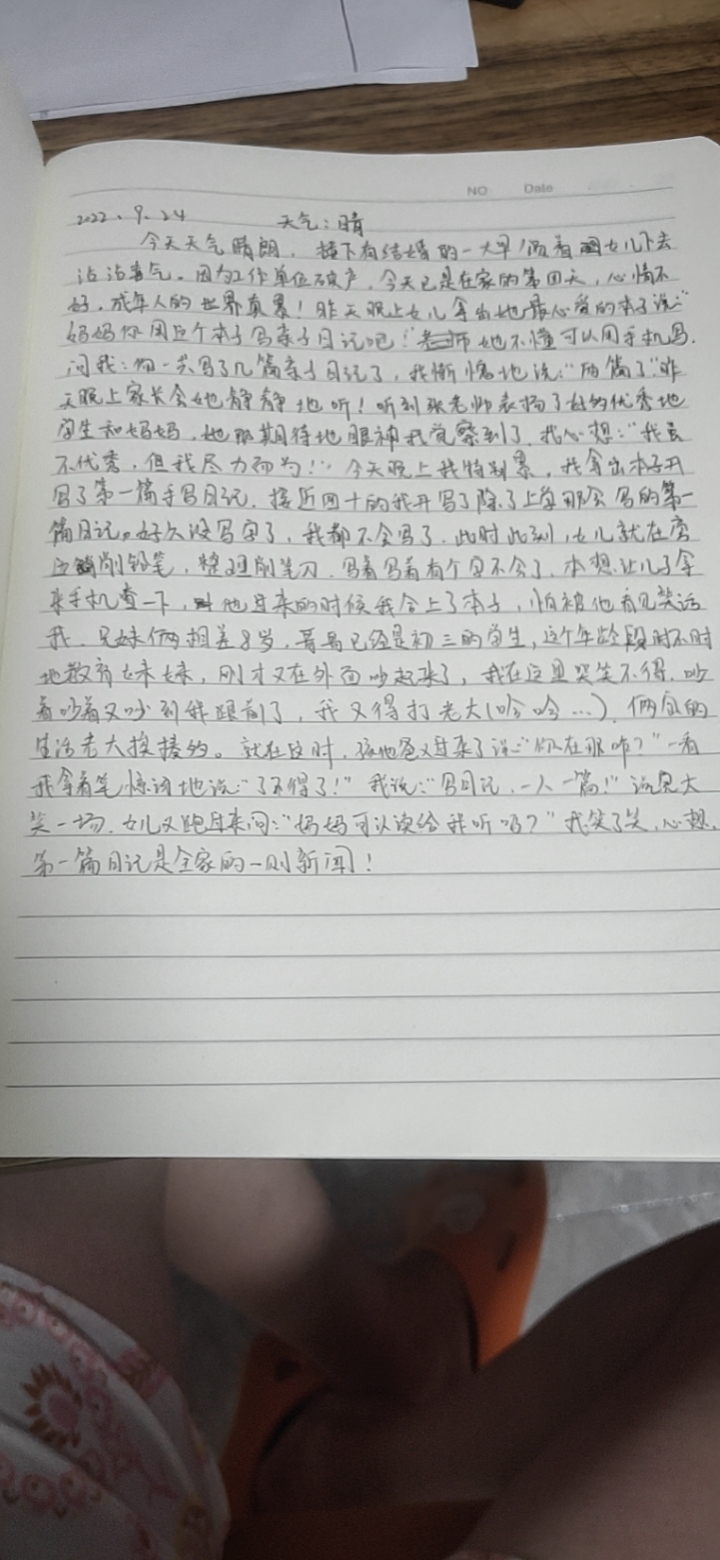 NO Date
2022.9.24 天气:晴
今天天气晴朗,楼下有结婚的一大早领着女儿下去
沾沾喜气。因为工作单位破产,今天已是在家的第四天,心情不
好,成年人的世界真累!昨天晚上女儿拿出她最心爱的本子说:“
妈妈你用这个本子写亲子日记吧!她不懂可以用手机写.
问我:你一共写了几篇亲子日记了,我惭愧地说:“两篇了”昨
天晚上家长会她静静地听!听到张老师表扬了好的优秀地
学生和妈妈,她那期待地眼神我觉察到了,我心想:“我虽
不优秀,但我尽力而为!”今天晚上我特别累,我拿出本子开
写了第一篇手写日记,接近四十的我开写了除了上学那会写的第一
篇日记。好久没写字了,我都不会写了.此时此刻,女儿就在旁
边削铅笔,整理削笔刀.写着写着有个字不会了,本想让儿子拿
来手机查一下,他过来的时候我合上了本子,怕被他看见笑话
我.兄妹俩相差8岁,哥哥已经是初三的学生,这个年龄段时不时
地教育妹妹,刚才又在外面吵起来了,我在这里哭笑不得,吵
着吵着又吵到我跟前了,我又得打老大(哈哈…),俩宝的
生活老大挨揍的。就在这时,孩他爸又过来了说:“你在那咋?”一看
我拿着笔惊讶地说:“了不得了!”我说:“写日记,一人一篇!”说见大
笑一场,女儿又跑过来问:“妈妈可以读给我听吗?”我笑了笑,心想,
第一篇日记是全家的一则新闻!